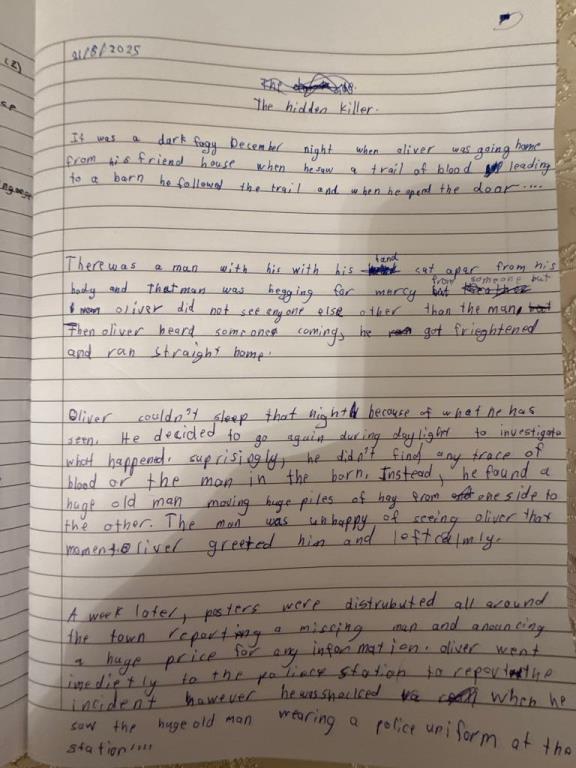 21/8/2025
The hidden killer.
It was a dark fogy December night when oliver was going home
from his friend house when he saw a trail of blood leading
to a barn he followed the trail and when he opend the door....
There was a man with his with his hand cut apar from his
body and That man was begging for mercy from someone but
oliver did not see any one else other than the man,
Then oliver heard someone coming, he got frieghtened
and ran straight home.
Oliver couldn't sleep that night because of what he has
seen. He decided to go again during day light to investigate
what happend. suprisingly, he didn't find any trace of
blood or the man in the barn. Instead, he found a
huge old man moving huge piles of hay from one side to
the other. The man was unhappy of seeing oliver that
moment. oliver greeted him and left calmly.
A week later, posters were distrubuted all around
the town reporting a missing man and anouncing
a huge price for any information. oliver went
imedietly to the police station to report the
incident however he was shocked when he
saw the huge old man wearing a police uniform at the
station....